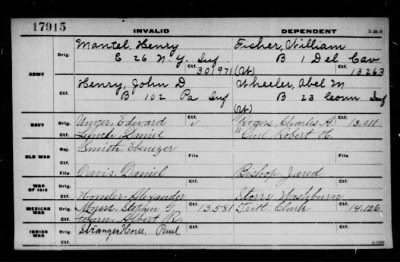 17915
INVALID
DEPENDENT
ARMY
Orig.
Mantel, Henry
Fisher, William
E 26 N.Y. Inf
B 1 Del Cav
Ctf.
301971
13263
Orig.
Henry, John D
Wheeler, Abel M
B 102 Pa Inf
B 23 Inf
Ctf.
NAVY
Orig.
Unger, Edward
Rogers, Charles A.
13,918
Ctf.
Lynch, Daniel
Robert H.
OLD WAR
Rej.
Smith Ebenezer
File
File
Davis Daniel
Bishop Jared
WAR OF 1812
Orig.
Alexander
Storrs Washburn
Ctf.
MEXICAN WAR
Orig.
Myers, Stephen G.
13,531
Tritt
14,126
Ctf.
Albert R.
INDIAN WAR
Orig.
Stranger Horse, Paul
Ctf.